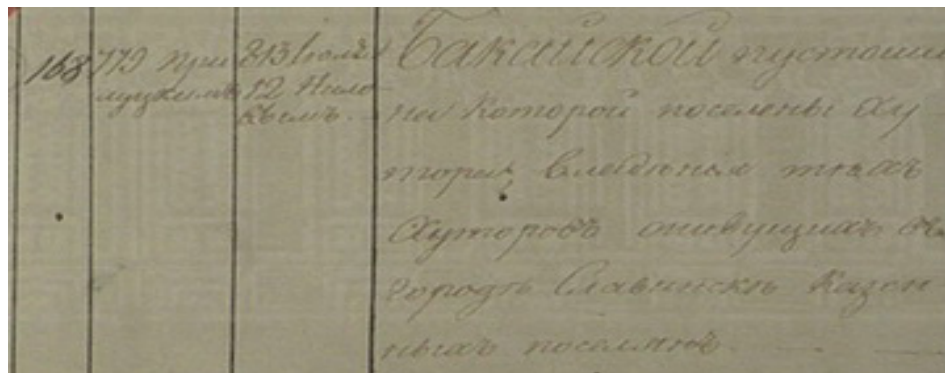 168
779 При
лущкимъ
813 волч
12 Нило
вымъ.
Бакайской пустоши
на которой поселены ху
тора, владѣнія тѣхъ
хуторовъ живущихъ въ
городѣ Славянскѣ казен
ныхъ поселянъ.